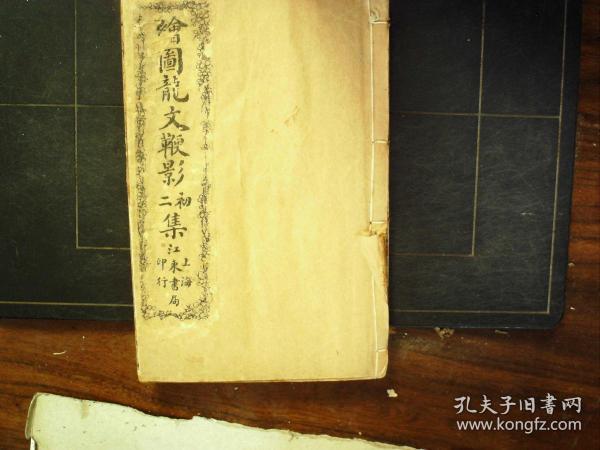 繪圖龍文鞭影初二集
上海江東書局印行
孔夫子旧书网
www.kongfz.com